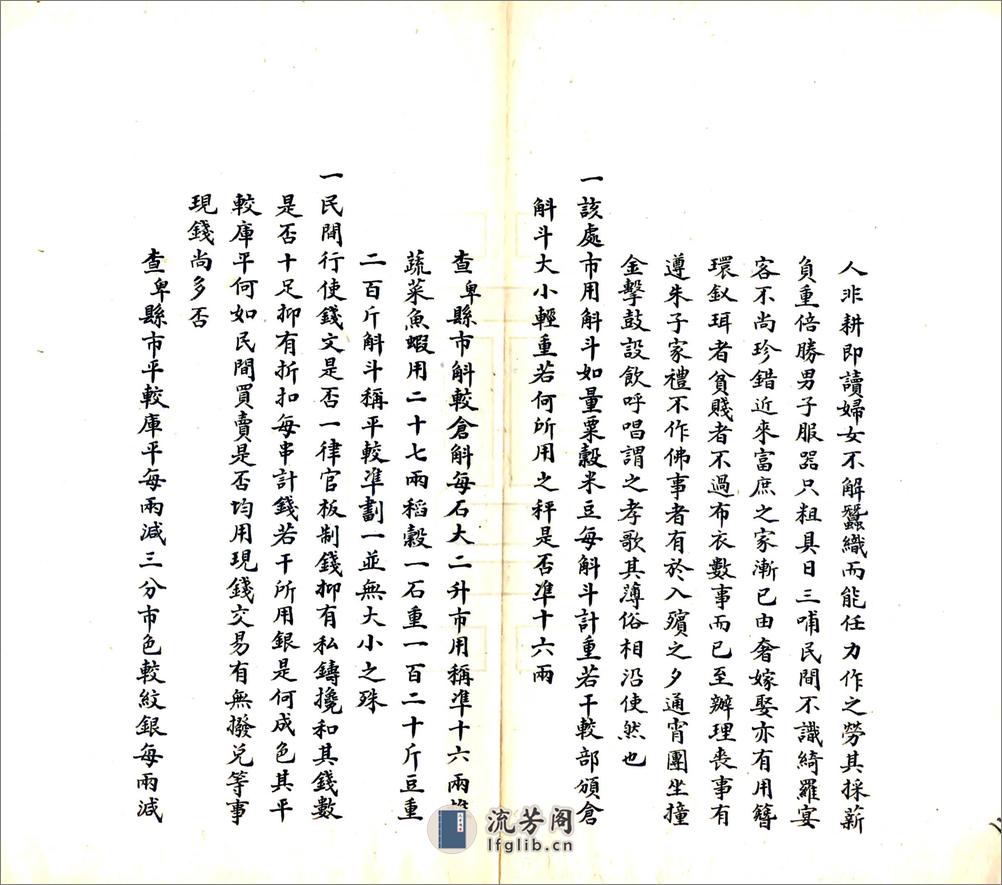 人非耕即讀婦女不解蠶織而能任力作之勞其採薪
負重倍勝男子服器只粗具日三哺民間不識綺羅宴
客不尚珍錯近來富庶之家漸已由奢嫁娶亦有用簪
環釵珥者貧賤者不過布衣數事而已至辦理喪事有
遵朱子家禮不作佛事者有於入殯之夕通宵團坐撞
金擊鼓設飲呼唱謂之孝歌其薄俗相沿使然也
一該處市用斛斗如量粟穀米豆每斛斗計重若干較部頒倉
斛斗大小輕重若何所用之秤是否準十六兩
查卑縣市斛較倉斛每石大二升市用稱準十六兩
蔬菜魚蝦用二十七兩稻穀一石重一百二十斤豆重
二百斤斛斗稱平較準劃一並無大小之殊
一民間行使錢文是否一律官板制錢抑有私鑄攙和其錢數
是否十足抑有折扣每串計錢若干所用銀是何成色其平
較庫平何如民間買賣是否均用現錢交易有無撥兌等事
現錢尚多否
查卑縣市平較庫平每兩減三分市色較紋銀每兩減
流芳阁
lfglib.cn